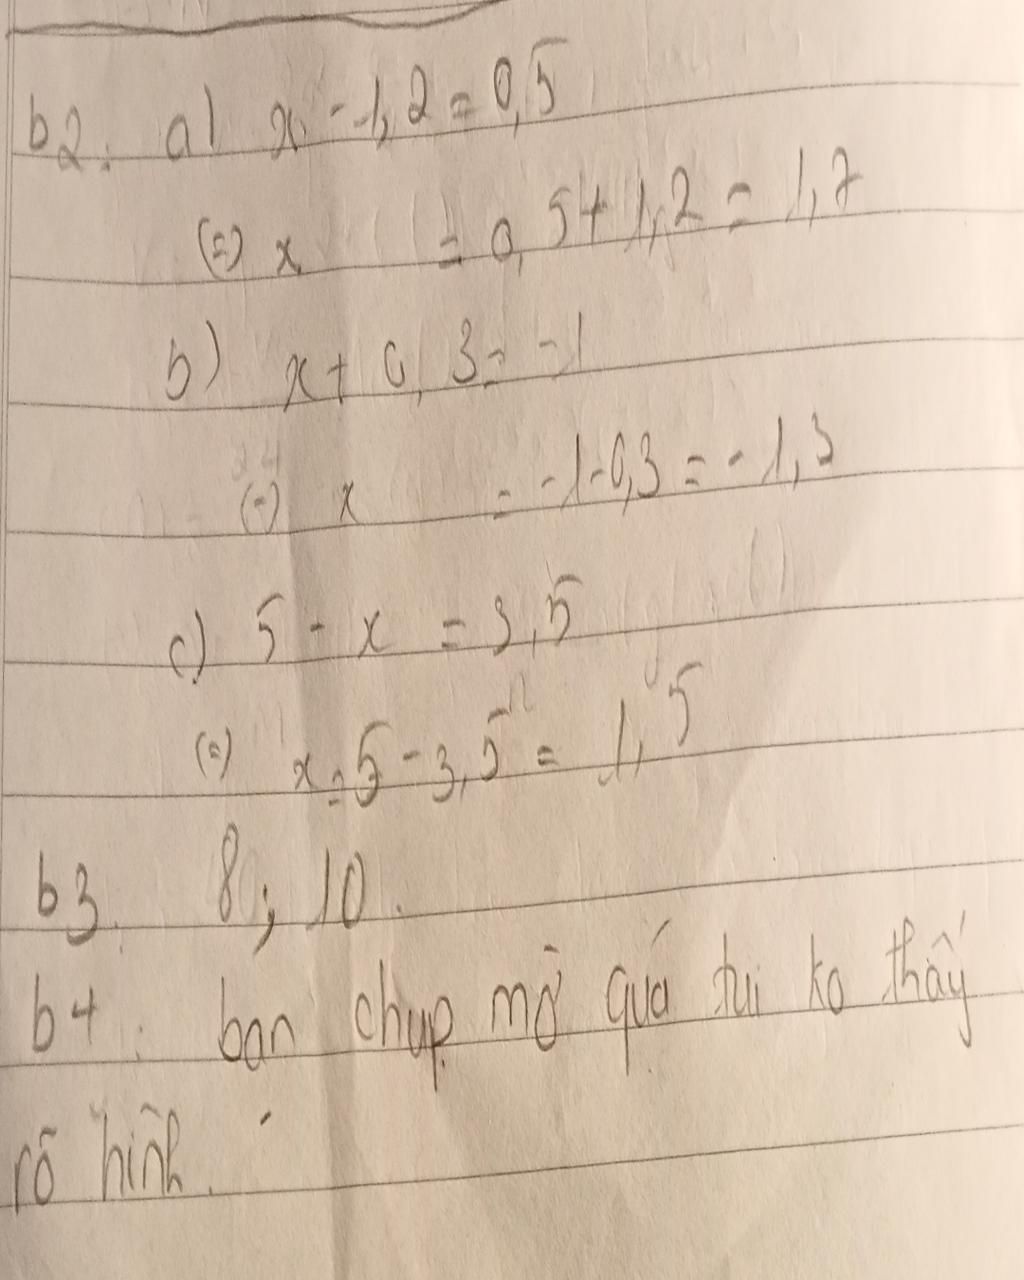 b2. a) x - 1,2 = 0,5
(=) x = 0,5 + 1,2 = 1,7
b) x + 0,3 = -1
(=) x = -1 - 0,3 = -1,3
c) 5 - x = 3,5
(=) x = 5 - 3,5 = 1,5
b3. 8; 10.
b4. bạn chụp mờ quá tui ko thấy
rõ hình.